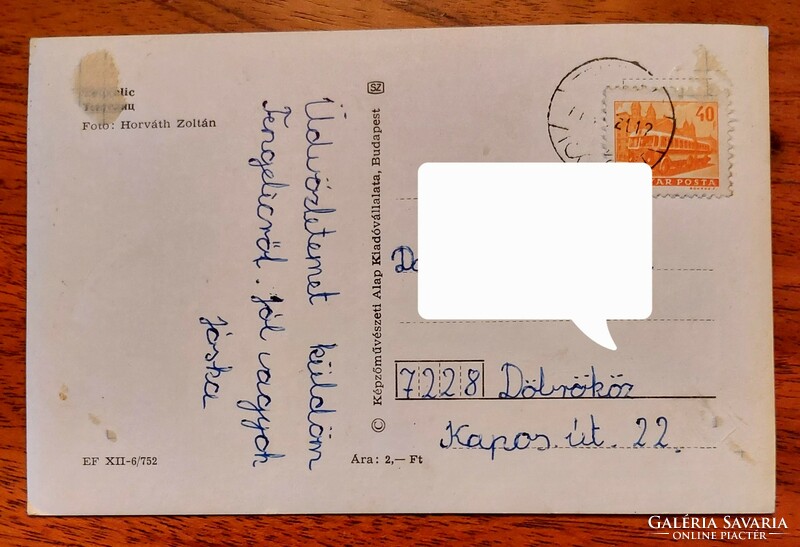 Foto: Horváth Zoltán
Üdvözletemet küldöm
Tengelicről. Jól vagyok
Jóska
EF XII-6/752
SZ
© Képzőművészeti Alap Kiadóvállalata, Budapest
Ára: 2,— Ft
40
POSTA
7228 Döbrököz
Kapos. út. 22.
GALÉRIA SAVARIA
ONLINE PIACTÉR